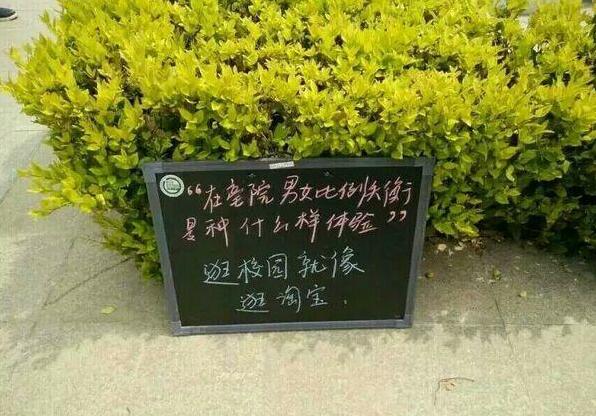 “在垦院男女比例失衡
是种什么样体验”
逛校园就像
逛淘宝.